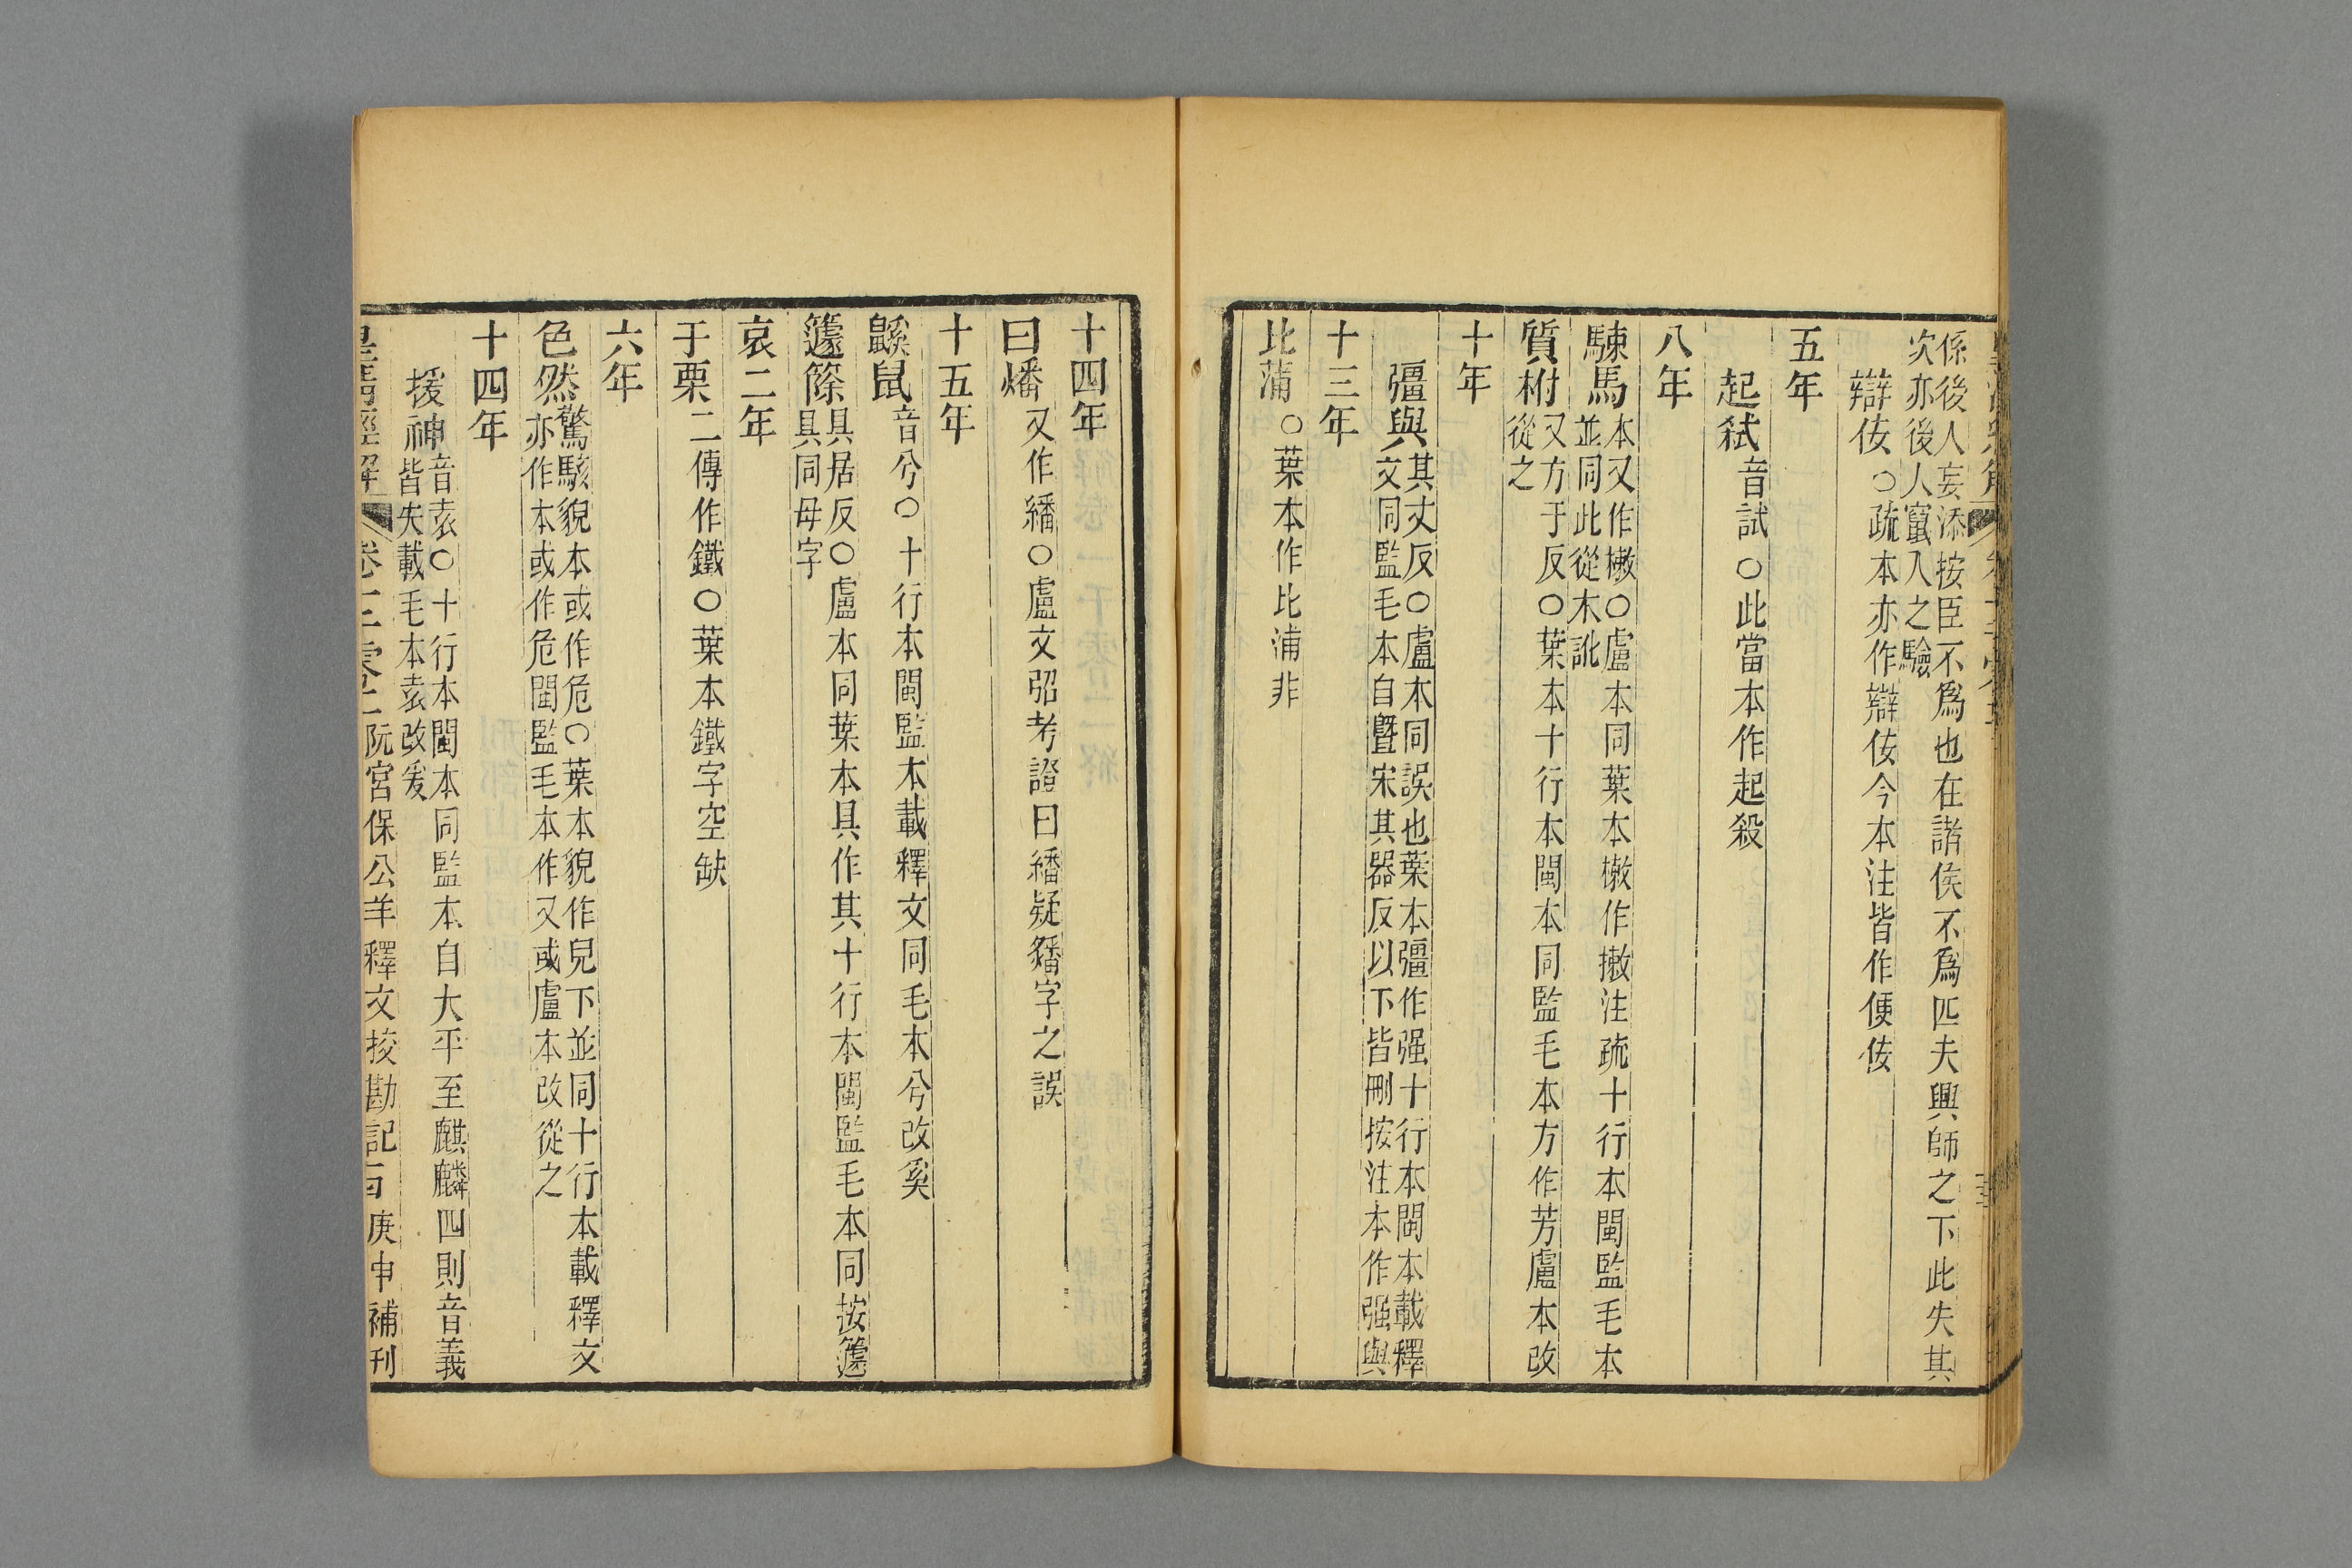 係後人妄添按臣不爲也在諸侯不爲匹夫興師之下此失其
次亦後人竄入之驗
辯佞 ○疏本亦作辯佞今本注皆作便佞
五年
起弒音試○此當本作起殺
八年
駷馬本又作㯳○盧本同葉本㯳作擻注疏十行本閩監毛本
並同此從木訛
質柎又方于反○葉本十行本閩本同監毛本方作芳盧本改
從之
十年
彊與其丈反○盧本同誤也葉本彊作强十行本閩本載釋
文同監毛本自曁宋其器反以下皆刪按注本作强與
十三年
比蒲 ○葉本作比浦非
十四年
曰燔又作繙○盧文弨考證曰繙疑䊩字之誤
十五年
鼷鼠音兮○十行本閩監本載釋文同毛本兮改奚
籧篨具居反○盧本同葉本具作其十行本閩監毛本同按籧
具同毋字
哀二年
于栗二傳作鐵○葉本鐵字空缺
六年
色然驚駭貌本或作危○葉本貌作皃下並同十行本載釋文
亦作本或作危閩監毛本作又或盧本改從之
十四年
援神音袁○十行本閩本同監本自大平至麒麟四則音義
皆失載毛本袁改爰
皇淸經解 卷一千零二 阮宮保公羊釋文挍勘記 庚申補刊